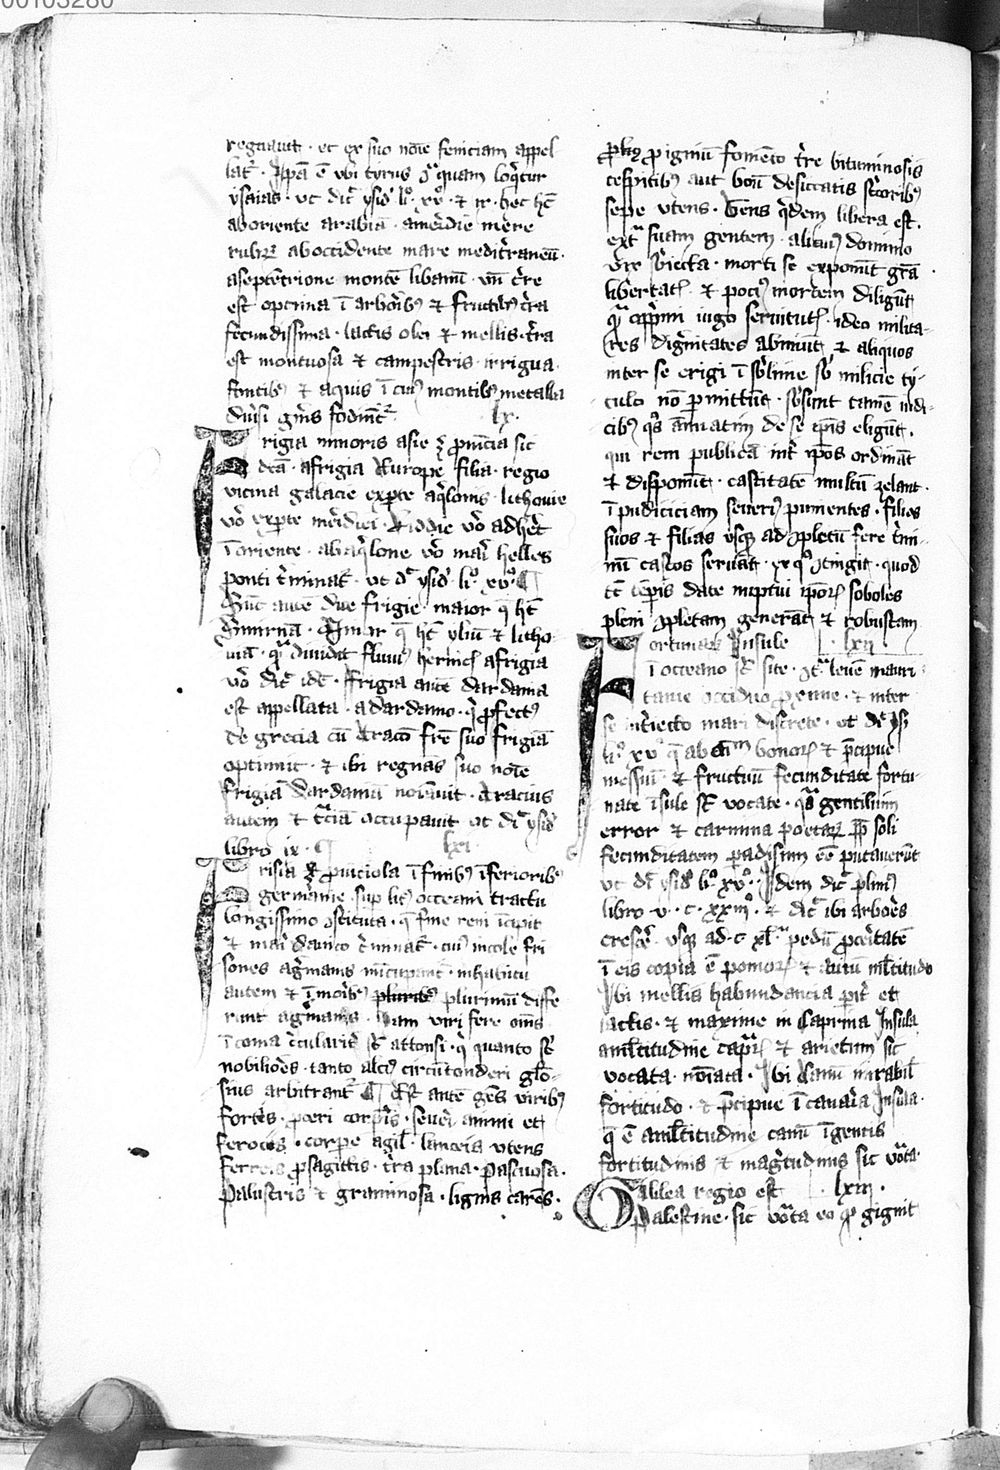 00103280
regnauit · et ex suo noīe feniciam appel
lat᷒ · Ipā ē vbi tyrus ꝯͣ quam loq̄tur
ysaias · vt dic᷒ ysid᷒ li᷒ · xv᷒ · ⁊ ix · hec hꝫ
ab oriente arabiā · a meridie mare
rubꝝ ab occidente mare medit᷒raneū ·
a septētrione montē libanū · vn̄ t᷒re
est optima ī arborib᷒ ⁊ fructib᷒ t᷒ra
fecundissima · lactis olei ⁊ mellis · t᷒ra
est montuosa ⁊ campestris · irrigua
fontib᷒ ⁊ aquis ī cui᷒ montib᷒ metalla
diuersi gn̄is fodiunt᷒ · lx ·
Frigia minoris asie ē prouīcia sic
dc̄a · a frigia Europe filia · regio
vicina galacie ex pte aq̄lonis · lithouie
vo᷒ ex pte meridiei · liddie vo᷒ adhet᷒
ī oriente · ab aq̄lone vo᷒ mari helles
ponti t᷒minat᷒ · vt d᷒ ysid᷒ li᷒ xv᷒ ¶
Sūt autē due frigie · maior q̄ hꝫ
Smirnā · Minor q̄ hꝫ yliū ⁊ litho
uiā · q᷒ diuidit fluui᷒ herini᷒ a frigia
vo᷒ dic᷒ · frigia autē dardania
est appellata · a dardano · q᷒ ꝓfect᷒
de grecia cū tracō fr̄e suo frigiā
optinuit · ⁊ ibi regnās suo noīe
frigiā dardaniā noīauit · Tracius
autem ⁊ t᷒ciā occupauit vt di᷒ ysid᷒
libro ix · ¶ lxi ·
Frisia ē ꝓuīciola ī finib᷒ īferiorib᷒
germanie · sup lit᷒ occeani tractu
longissimo ꝯstituta · q̄ fine reni īcipit
⁊ mari danico t᷒minat᷒ · cui᷒ incole fri
sones a g᷒manis nūcupant᷒ · in habitu
autem ⁊ ī morib᷒ plurib᷒ plurimū diffe
runt a g᷒manis · Nam viri fere oms
ī coma circularit᷒ st᷒ attonsi · q quanto st᷒
nobiliores · tanto alci᷒ circūtonderi glo
sius arbitrant᷒ ¶ Est autē gēs virib᷒
fortis · ꝓceri corporis · seueri animi et
ferocis · corpe agil᷒ · lanceis vtens
ferreis ꝓ sagittis · t᷒ra plana · pascuosa ·
palustris ⁊ graminosa · lignis carēs ·
ꝓpt᷒ qd ꝓ igniū fomēto t᷒re bituminosis
cespitib᷒ aut boū desiccatis stercorib᷒
sepe vtens · Gens q᷒dem libera est ·
ext᷒ suam gentem · alicui᷒ dominio
nō subiecta · morti se exponūt gr̄a
libertatꝭ · ⁊ poci᷒ mortem diligūt
q᷒ opprimi iugo seruitutꝭ · ideo milita
res dignitates abnuūt ⁊ aliquos
inter se erigi ī sublime sub milicie ty
tulo nō permittūt · subsunt tamē iudi
cib᷒ q᷒s ānuatim de se ip̄is eligūt ·
qui rem publicā int᷒ ip̄os ordināt
⁊ disponūt · castitatē multū zelant ·
īpudiciciam seueri᷒ punientes · filios
suos ⁊ filias vsq̄ ad ꝯpletū fere t᷒mi
nū castos seruāt · ex q᷒ ꝯtingit · quod
tc̄ tēpis date nuptui ipoꝝ soboles
pleni ꝯpletam generāt ⁊ robustam
Fortunate Insule · lxii ·
ī occeano st᷒ site · ꝯt᷒ leuē mauri
tanie occiduo proxime · ⁊ inter
se interiecto mari discrete · vt d᷒ ys᷒
li᷒ · xv᷒ q̄ ab omni bonoꝝ ⁊ p᷒cipue
messiū ⁊ fructuū fecunditate fortu
nate īsule st᷒ vocate · q᷒s gentiliū
error ⁊ carmina poetaꝝ ꝓpt᷒ soli
fecunditatem paradisum eē putauerūt
vt di᷒ ysid᷒ li᷒ xv᷒ · Idem dic᷒ plini᷒
libro · v · c · xxiii᷒ · ⁊ dic᷒ ibi arbores
cresce᷒ · vsq̄ ad · c · xl᷒ · pedū ꝓceritatē
ī eis copia ē pomoꝝ ⁊ auiū ml̄titudo
Ibi mellis habundancia parit᷒ et
lactis · ⁊ maxime in Caprina Insula
a ml̄titudine capraꝝ ⁊ arietum sic
vocata · noīata · Ibi Canū mirabil᷒
fortitudo · ⁊ p᷒cipue ī canaria Insula ·
q̄ ē a ml̄titudine canū īgentis
fortitudinis ⁊ magnitudinis sic voc᷒ta
Galilea regio est · lxiii ·
palestine · sic voc᷒ta eo ꝙ gignit